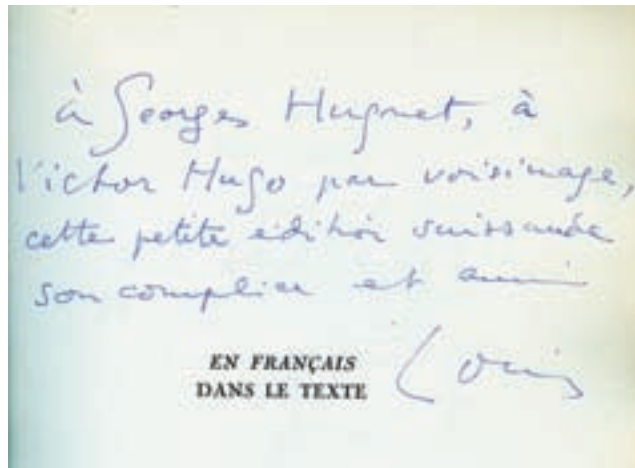 à Georges Hugnet, à
Victor Hugo par voisinage,
cette petite édition suissaude
son complice et ami
Louis
EN FRANÇAIS
DANS LE TEXTE